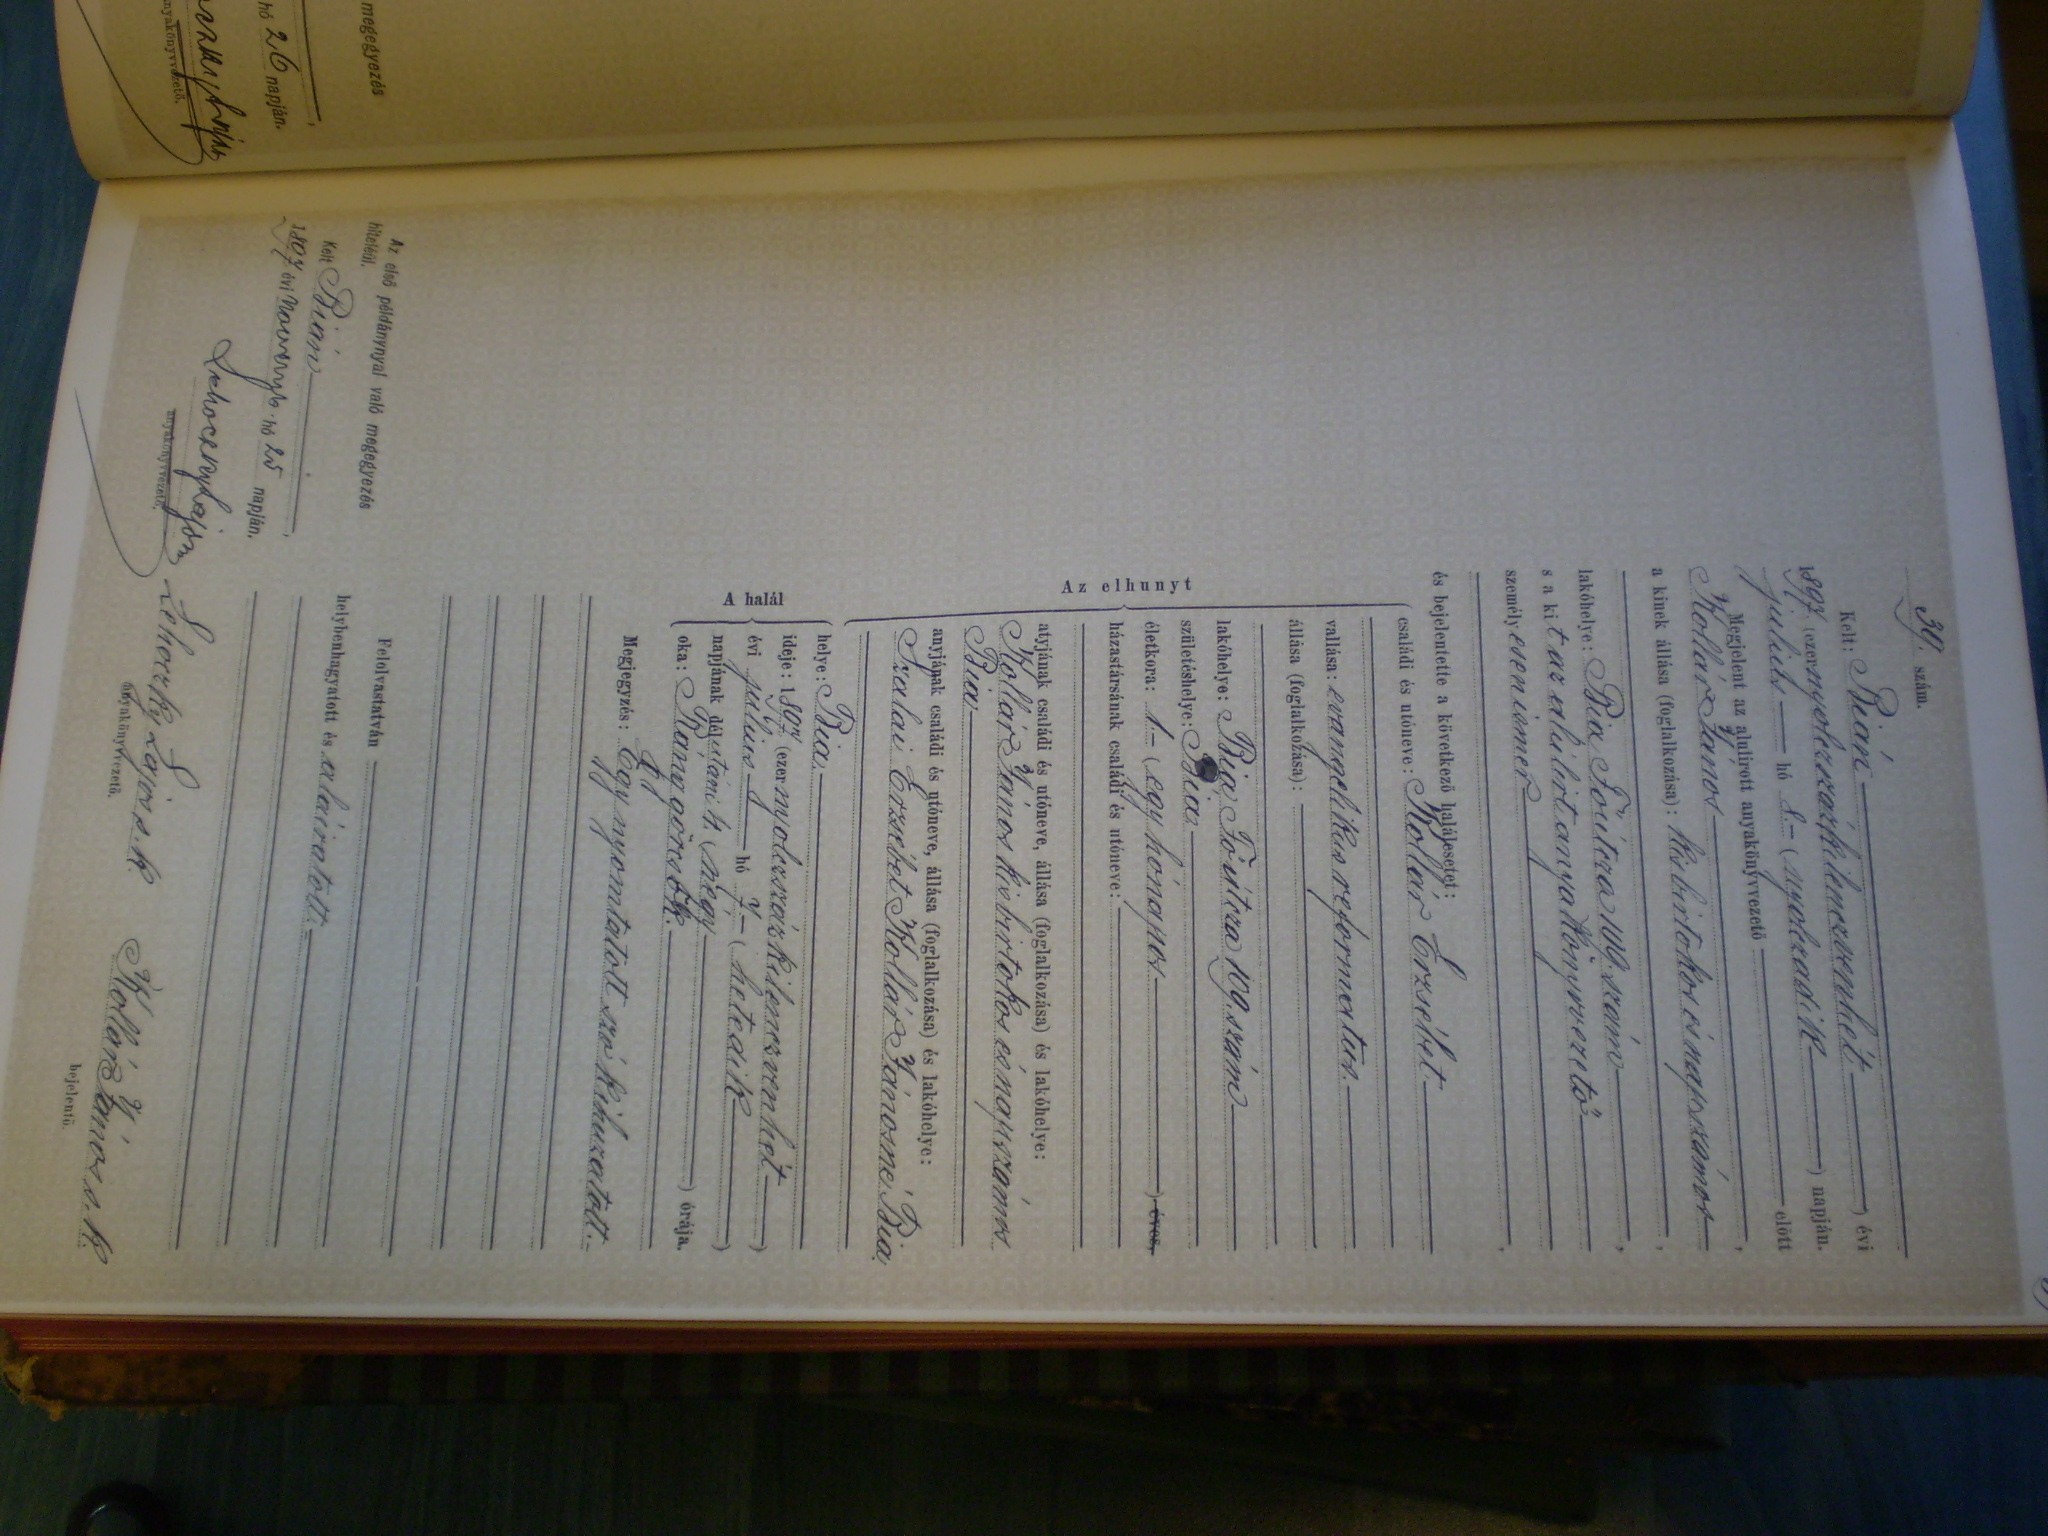 megegyezés
hó 26 napján.
anyakönyvvezető.
30. szám.
Kelt: Bián
1897. (ezernyolczszázkilenczvenhét) évi
julius hó 8.- (nyolczadik) napján.
Megjelent az alulirott anyakönyvvezető előtt
Kollár János,
a kinek állása (foglalkozása): kisbirtokos és napszámos,
lakóhelye: Bia Fő útcza 109 szám,
s a kit az alulirt anyakönyvvezető
személyesen ismer,
és bejelentette a következő halálesetet:
Az elhunyt
családi és utóneve: Kollár Erzsébet
vallása: evangelikus reformatus.
állása (foglalkozása):
lakóhelye: Bia, Fő útcza 109. szám
születéshelye: Bia
életkora: 1.- (egy hónapos) éves,
házastársának családi és utóneve:
atyjának családi és utóneve, állása (foglalkozása) és lakóhelye:
Kollár János kisbirtokos és napszámos
Bia
anyjának családi és utóneve, állása (foglalkozása) és lakóhelye:
Szalai Erzsébet Kollár Jánosné, Bia,
A halál
helye: Bia.
ideje: 1897 (ezernyolczszázkilenczvenhét)
évi julius hó 7.- (hetedik)
napjának délutáni 4. (négy) órája.
oka: Ráng görcsök.
Megjegyzés: Egy nyomtatott szó kihuzatott.-
Felolvastatván
helybenhagyatott és aláiratott.-
Lehoczky Lajos s. k.
anyakönyvvezető.
Kollár János s. k.
bejelentő.
Az első példánynyal való megegyezés
hiteléül.
Kelt Bián,
1897 évi Novemb. hó 25 napján.
Lehoczky Lajos
anyakönyvvezető.